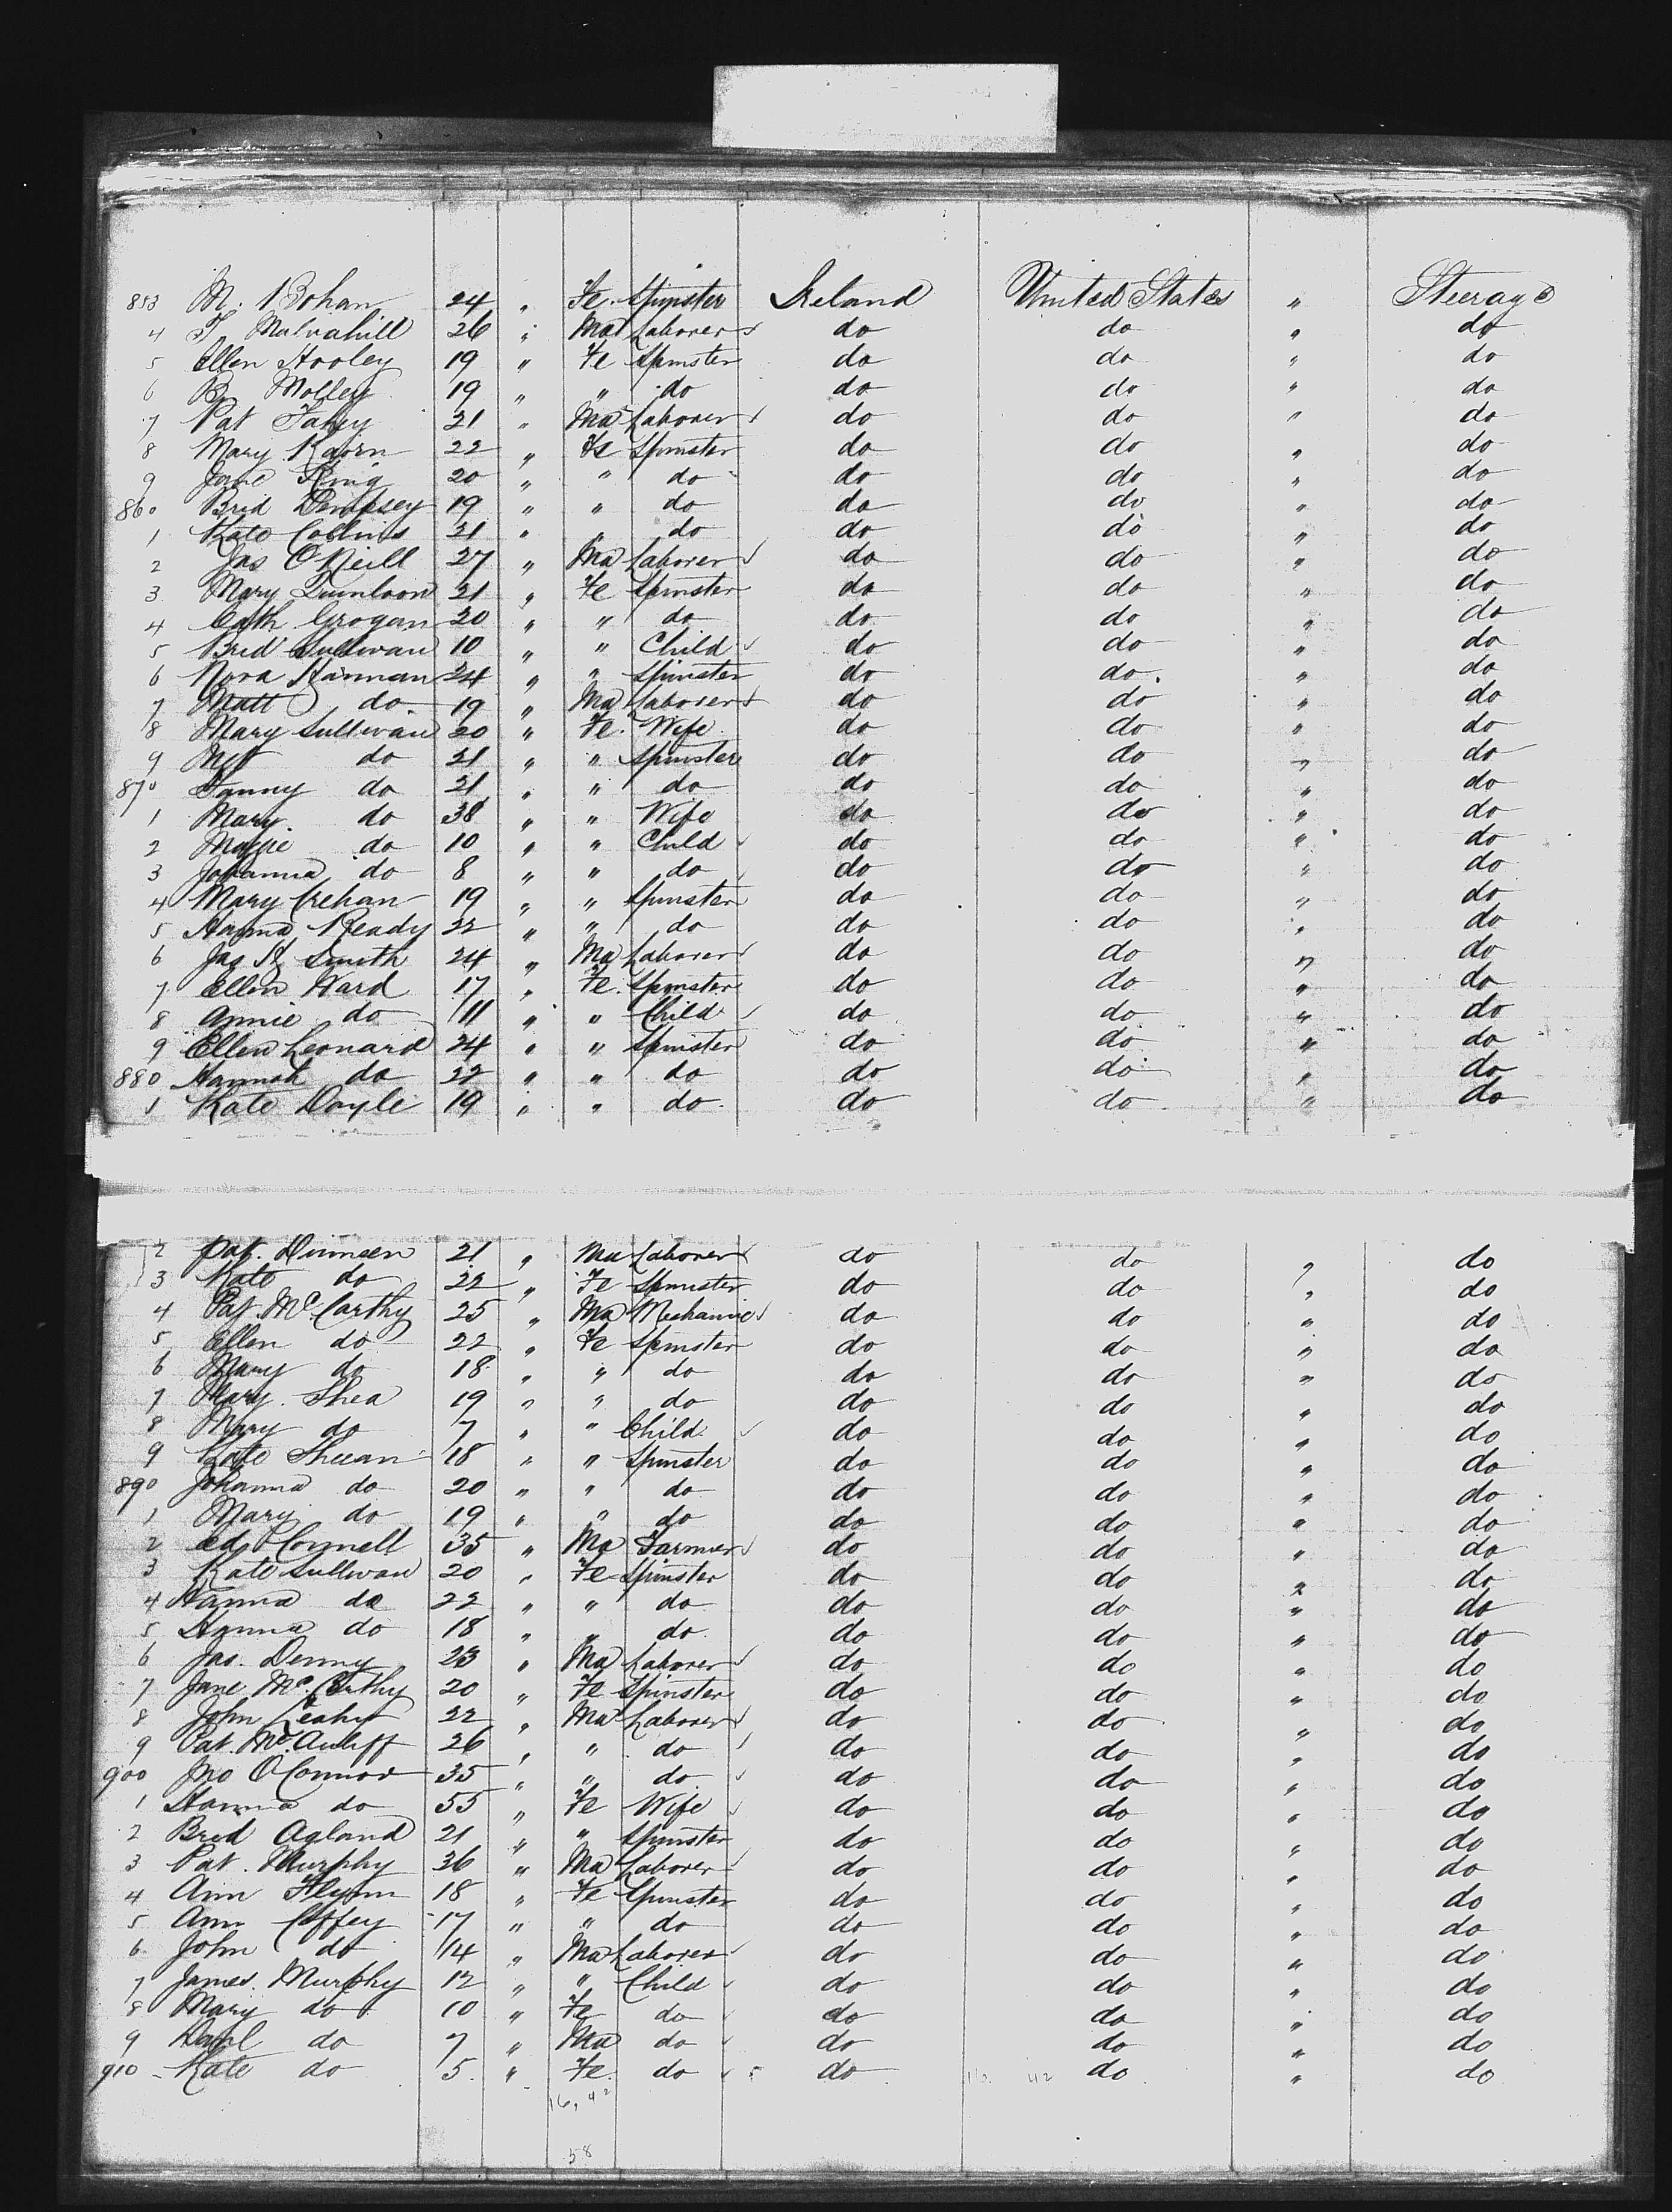 853 M. Bohan 24 " Fe. Spinster Ireland United States " Steerage
4 T Mulvahill 26 " Ma Laborer do do " do
5 Ellen Hooley 19 " Fe Spinster do do " do
6 B. Molley 19 " " do do do " do
7 Pat Fahy 21 " Ma Laborer do do " do
8 Mary 22 " Fe Spinster do do " do
9 Jane King 20 " " do do do " do
860 Brid Dempsey 19 " " do do do " do
1 Kate Collins 21 " " do do do " do
2 Jas O'Neill 27 " Ma Laborer do do " do
3 Mary Quinloon 21 " Fe Spinster do do " do
4 Cath Grogan 20 " " do do do " do
5 Brid Sullivan 10 " " Child do do " do
6 Nora Hannan 24 " " Spinster do do. " do
7 Matt do 19 " Ma Laborer do do " do
8 Mary Sullivan 20 " Fe. Wife do do " do
9 do 21 " " Spinster do do " do
870 Fanny do 21 " " do do do " do
1 Mary. do 38 " " Wife do do " do
2 Maggie do 10 " " Child do do " do
3 Johanna do 8 " " do do do " do
4 Mary Crehan 19 " " Spinster do do " do
5 Hanna Ready 22 " " do do do " do
6 Jas Smith 24 " Ma Laborer do do " do
7 Ellen Ward 17 " Fe. Spinster do do " do
8 Annie do 11 " " Child do do " do
9 Ellen Leonard 24 " " Spinster do do " do
880 Hannah do 22 " " do do do " do
1 Kate Doyle 19 " " do do do " do
2 Pat. Dinnsen 21 " Ma Laborer do do " do
3 Kate do 22 " Fe Spinster do do " do
4 Pat. McCarthy 25 " Ma Mechanic do do " do
5 Ellen do 22 " Fe Spinster do do " do
6 Mary do 18 " " do do do " do
7 Mary. Shea 19 " " do do do " do
8 Mary do 7 " " Child do do " do
9 Kate Sheean 18 " " Spinster do do " do
890 Johanna do 20 " " do do do " do
1 Mary do 19 " " do do do " do
2 Ed. Connell 35 " Ma Farmer do do " do
3 Kate Sullivan 20 " Fe Spinster do do " do
4 Hanna do 22 " " do do do " do
5 Hanna do 18 " " do do do " do
6 Jas. Denny 23 " Ma Laborer do do " do
7 Jane McCarthy 20 " Fe Spinster do do " do
8 John Leahy 22 " Ma Laborer do do " do
9 Pat. McAuliff 26 " " do do do " do
900 Jno O'Connor 35 " " do do do " do
1 Hanna do 55 " Fe Wife do do " do
2 Brid Agland 21 " " Spinster do do " do
3 Pat. Murphy 36 " Ma Laborer do do " do
4 Ann Flynn 18 " Fe Spinster do do " do
5 Ann Coffey 17 " " do do do " do
6 John do 14 " Ma Laborer do do " do
7 James. Murphy 12 " " Child do do " do
8 Mary do 10 " Fe do do do " do
9 Danl do 7 " Ma do do do " do
910 Kate do 5. " Fe. do do do " do
16, 42
58